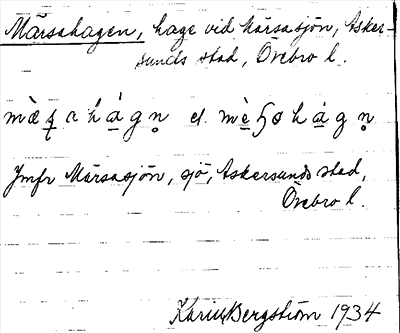 Märsahagen, hage vid Märsasjön, Asker-
sunds stad, Örebro l.
el.
Jmfr Märsasjön, sjö, Askersunds stad,
Örebro l.
Karin Bergström 1934